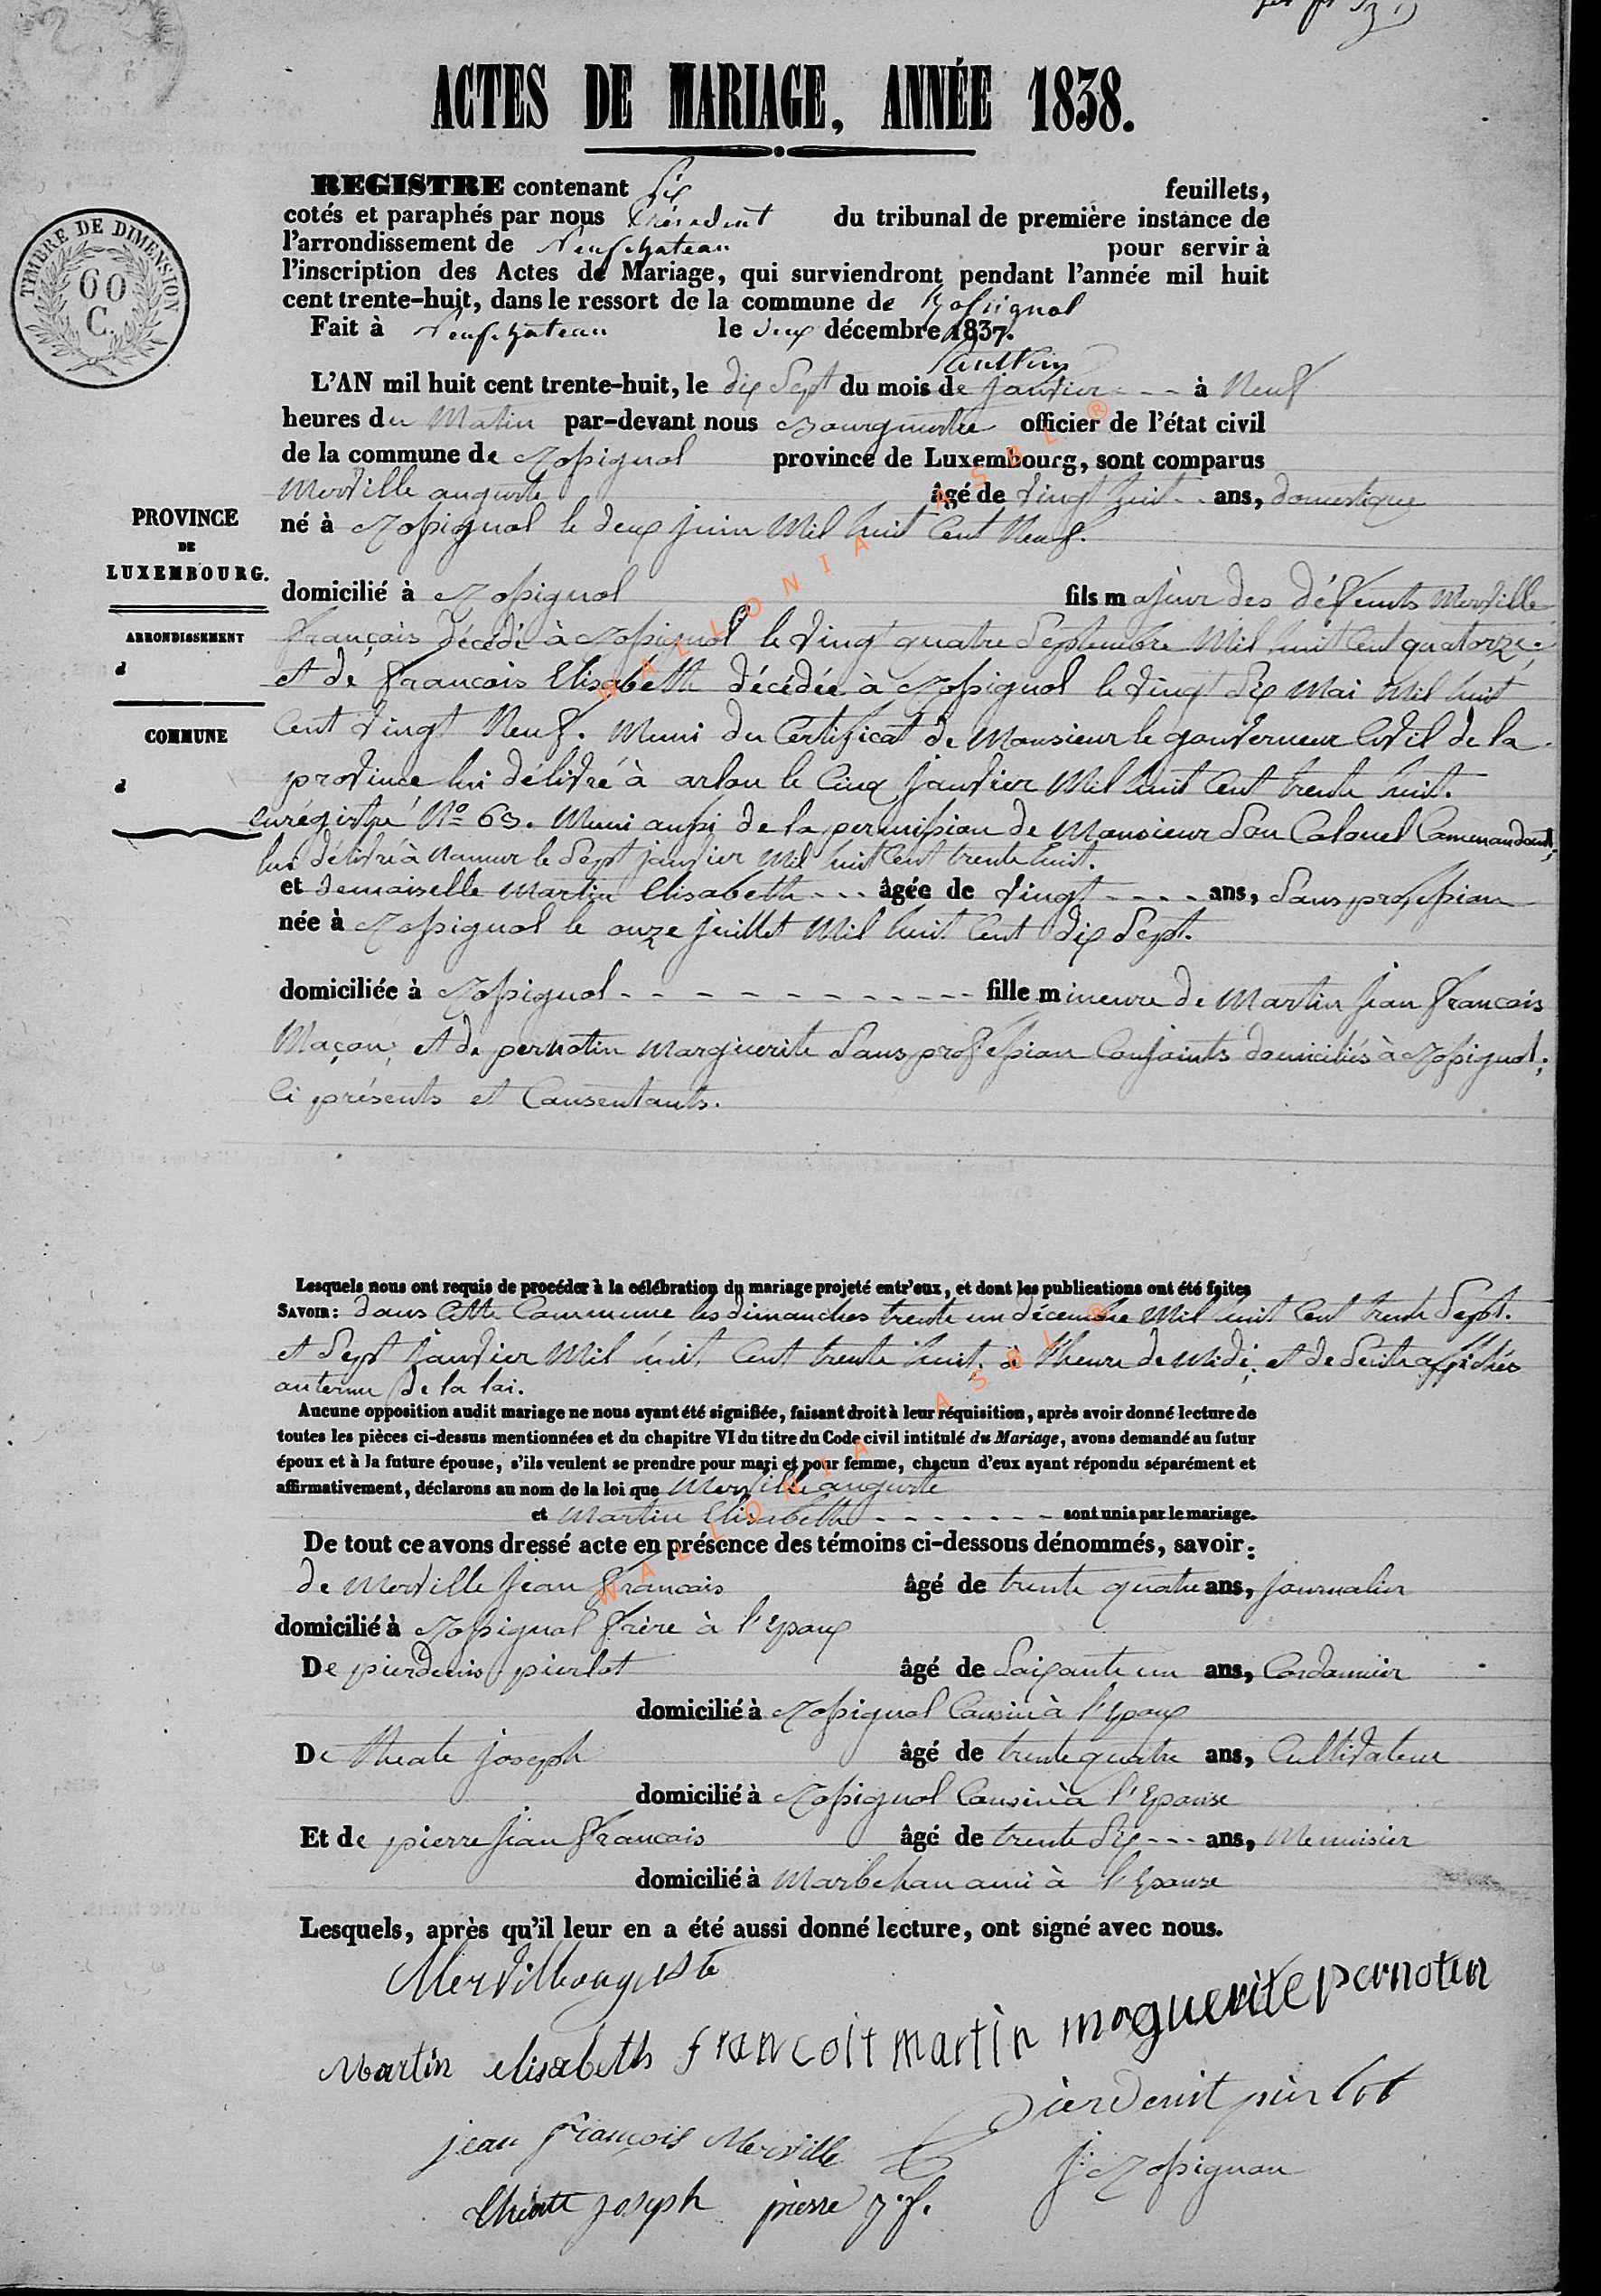 ACTES DE MARIAGE, ANNÉE 1838.
TIMBRE DE DIMENSION
60
C.
REGISTRE contenant Six feuillets,
cotés et paraphés par nous Président du tribunal de première instance de
l'arrondissement de Neufchateau pour servir à
l'inscription des Actes de Mariage, qui surviendront pendant l'année mil huit
cent trente-huit, dans le ressort de la commune de Rossignol
Fait à Neufchateau le deux décembre 1837.
L'AN mil huit cent trente-huit, le dix Sept du mois de janvier à Neuf
heures du Matin par-devant nous Bourgmestre officier de l'état civil
de la commune de Rossignol province de Luxembourg, sont comparus
Merville auguste âgé de vingt huit ans, domestique
né à Rossignol le deux juin Mil huit Cent Neuf.
PROVINCE
DE
LUXEMBOURG.
domicilié à Rossignol fils majeur des défunts Merville
ARRONDISSEMENT
d
françois décédé à Rossignol le vingt quatre Septembre Mil huit Cent quatorze;
et de francois Elisabeth décédée à Rossignol le vingt Six Mai Mil huit
COMMUNE
d
Cent vingt Neuf. Muni du Certificat de Monsieur le gouverneur Civil de la
province lui délivré à arlon le Cinq janvier Mil huit Cent trente huit.
enrégistré Nº 63. Muni aussi de la permission de Monsieur Son Colonel Commandant;
lui délivré à Namur le Sept janvier Mil huit Cent trente huit.
et demoiselle Martin Elisabeth âgée de vingt ans, Sans profession
née à Rossignol le onze juillet Mil huit Cent dix Sept.
domiciliée à Rossignol fille mineure de Martin jean francois
Maçon; et de pernotin Marguerite Sans profession Conjoints domiciliés à Rossignol;
Ci présents et Consentants.
Lesquels nous ont requis de procéder à la célébration du mariage projeté entr'eux, et dont les publications ont été faites
SAVOIR: dans Cette Commune les dimanches trente un décembre Mil huit Cent trente Sept.
et Sept janvier Mil huit Cent trente huit, à l'heure de Midi; et de Suite affichés
au terme de la loi.
Aucune opposition audit mariage ne nous ayant été signifiée, faisant droit à leur réquisition, après avoir donné lecture de
toutes les pièces ci-dessus mentionnées et du chapitre VI du titre du Code civil intitulé du Mariage, avons demandé au futur
époux et à la future épouse, s'ils veulent se prendre pour mari et pour femme, chacun d'eux ayant répondu séparément et
affirmativement, déclarons au nom de la loi que Merville auguste
et Martin Elisabeth sont unis par le mariage.
De tout ce avons dressé acte en présence des témoins ci-dessous dénommés, savoir:
de Merville Jean francois âgé de trente quatre ans, journalier
domicilié à Rossignol frère à l'Epoux
De pierdenis pierlot âgé de Soixante un ans, Cordonnier
domicilié à Rossignol Cousin à l'Epoux
De theate joseph âgé de trente quatre ans, Cultivateur
domicilié à Rossignol Cousin à l'Epouse
Et de pierre jean francois âgé de trente Six ans, Menuisier
domicilié à Marbehan ami à l'Epouse
Lesquels, après qu'il leur en a été aussi donné lecture, ont signé avec nous.
Merville auguste
Martin elisabeth francoit martin marguerite pernotin
pierdenit pierlot
jean françois Merville
J Rossignon
théate joseph pierre j. f.
WALLONIA ASBL ®
WALLONIA ASBL ®